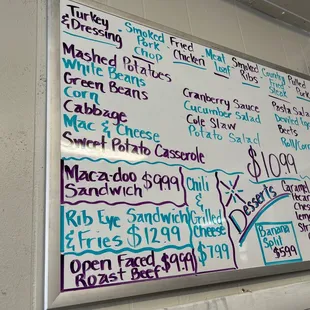 Turkey
& Dressing
Smoked
Pork
Chop
Fried
Chicken
Meat
Loaf
Smoked
Ribs
Country
Fried
Steak
Pulled
Pork
Mashed Potatoes
White Beans
Green Beans
Corn
Cabbage
Mac & Cheese
Sweet Potato Casserole
Cranberry Sauce
Cucumber Salad
Cole Slaw
Potato Salad
Pasta Salad
Beets
$10.99
Maca-doo
Sandwich $9.99
Rib Eye Sandwich
& Fries $12.99
Open Faced $9.99
Roast Beef
Chili
&
Grilled
Cheese
$7.99
Desserts
Caramel
Banana
Split
$5.99